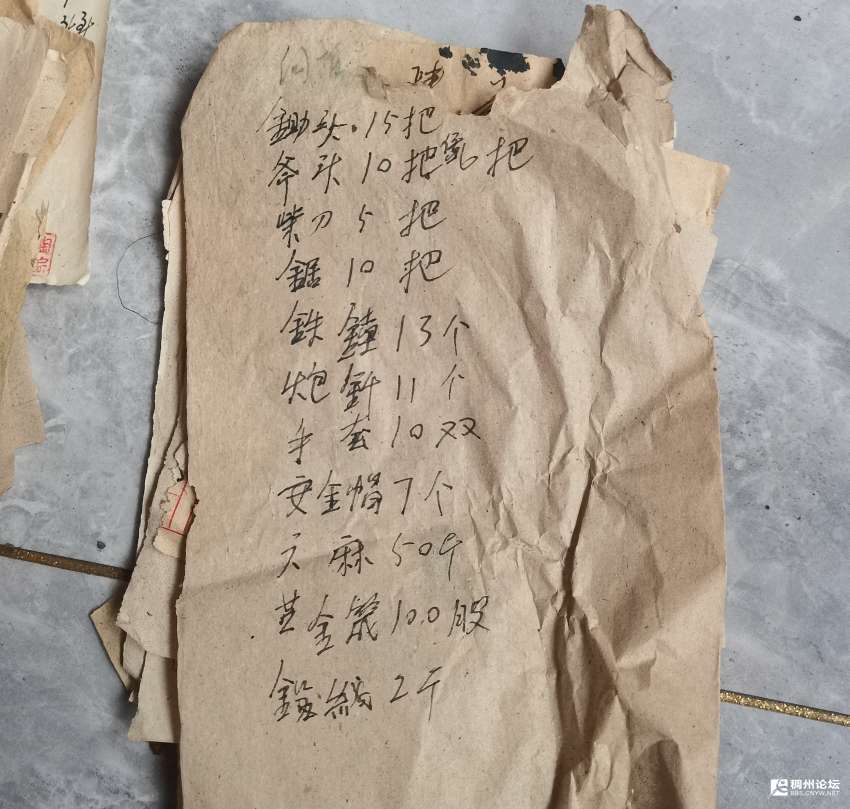 鋤头.15把
斧头 10 把 把
柴刀 5 把
鋸 10 把
鉄鎚 13个
炮釺 11 个
手套 10 双
安全帽 7个
天麻 50斤
10.0股
2斤
稠州论坛
BBS.CNYW.NET